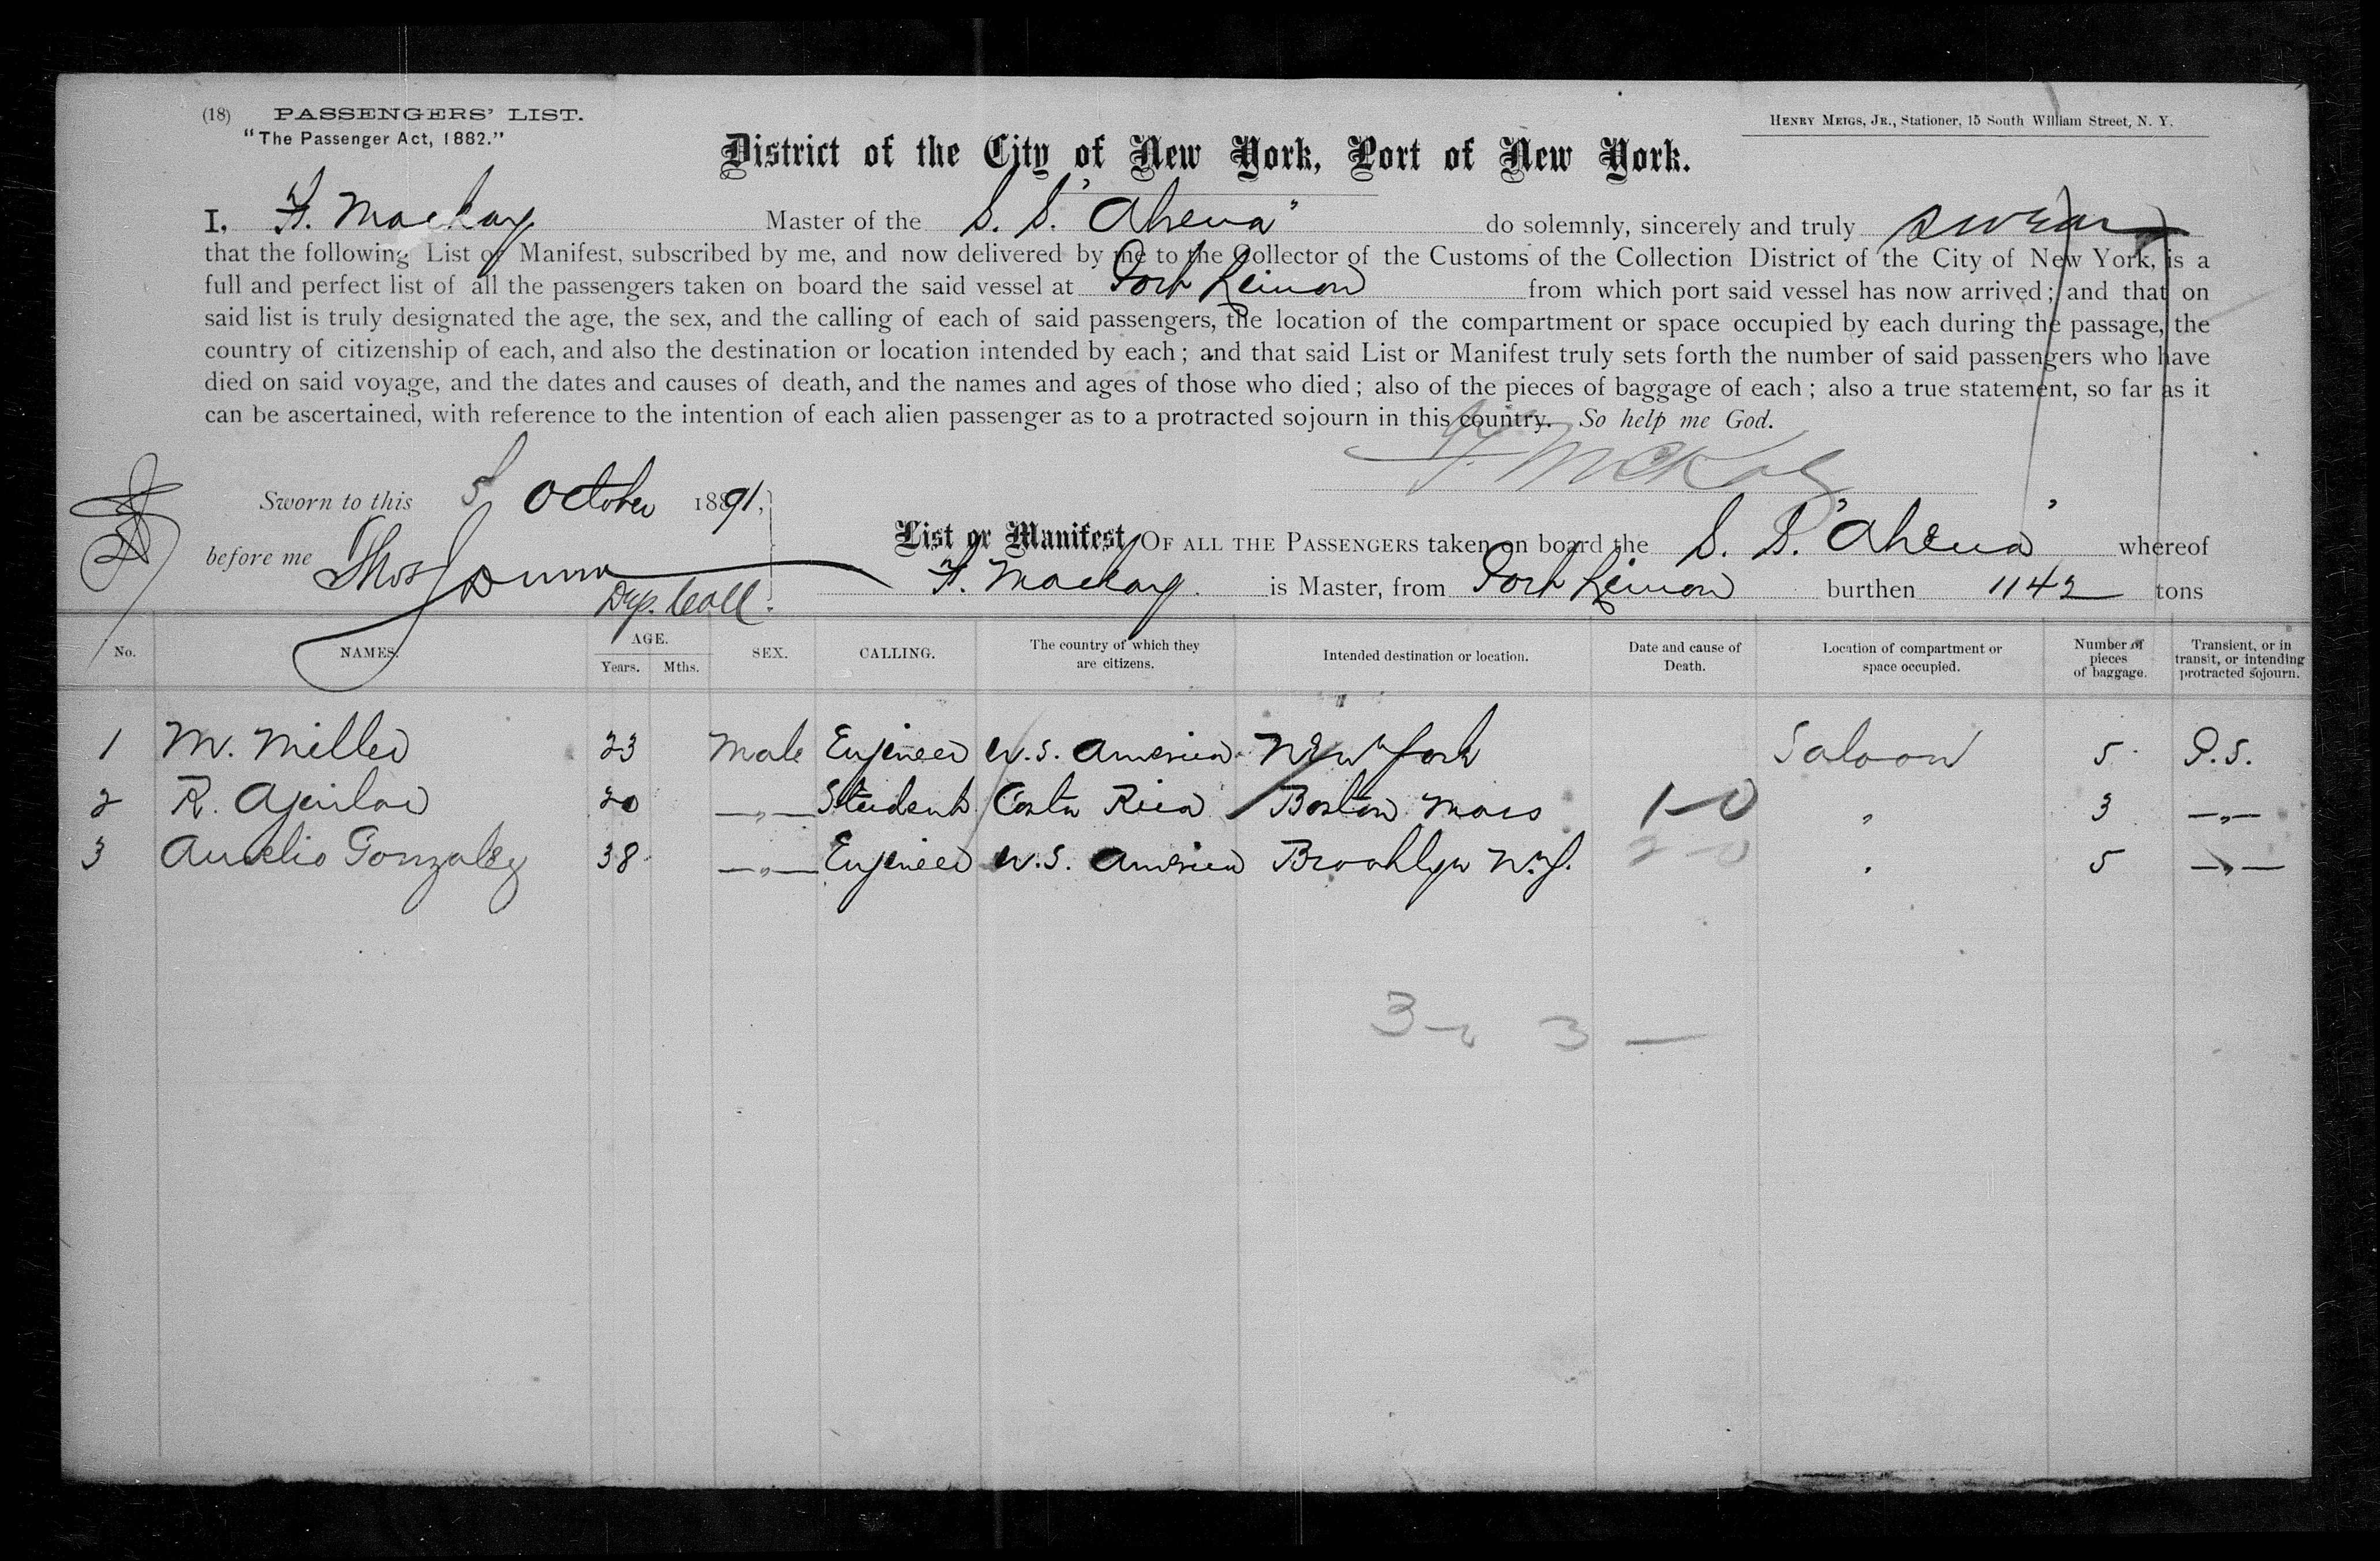 (18) PASSENGERS' LIST.
"The Passenger Act, 1882."
HENRY MEIGS, JR., Stationer, 15 South William Street, N. Y.
District of the City of New York, Port of New York.
I, F. Mackay Master of the S. S. "Ahena" do solemnly, sincerely and truly swear
that the following List or Manifest, subscribed by me, and now delivered by me to the Collector of the Customs of the Collection District of the City of New York, is a
full and perfect list of all the passengers taken on board the said vessel at Port Limon from which port said vessel has now arrived; and that on
said list is truly designated the age, the sex, and the calling of each of said passengers, the location of the compartment or space occupied by each during the passage, the
country of citizenship of each, and also the destination or location intended by each; and that said List or Manifest truly sets forth the number of said passengers who have
died on said voyage, and the dates and causes of death, and the names and ages of those who died; also of the pieces of baggage of each; also a true statement, so far as it
can be ascertained, with reference to the intention of each alien passenger as to a protracted sojourn in this country. So help me God.
F. McKay
Sworn to this 5 October 1891,
before me Thos Dunn
Dep. Coll.
List or Manifest OF ALL THE PASSENGERS taken on board the S. S. "Ahena" whereof
F. Mackay. is Master, from Port Limon burthen 1142 tons
No. NAMES. AGE. Years. Mths. SEX. CALLING. The country of which they are citizens. Intended destination or location. Date and cause of Death. Location of compartment or space occupied. Number of pieces of baggage. Transient, or in transit, or intending protracted sojourn.
1 M. Miller 23 Male Engineer U.S. America New York Saloon 5 P.S.
2 R. Aguilar 20 —„— Student Costa Rica Boston Mass 1-0 „ 3 —„—
3 Aurelio Gonzalez 38 —„— Engineer U.S. America Brooklyn N.Y. 2-0 „ 5 —„—
3 3 —